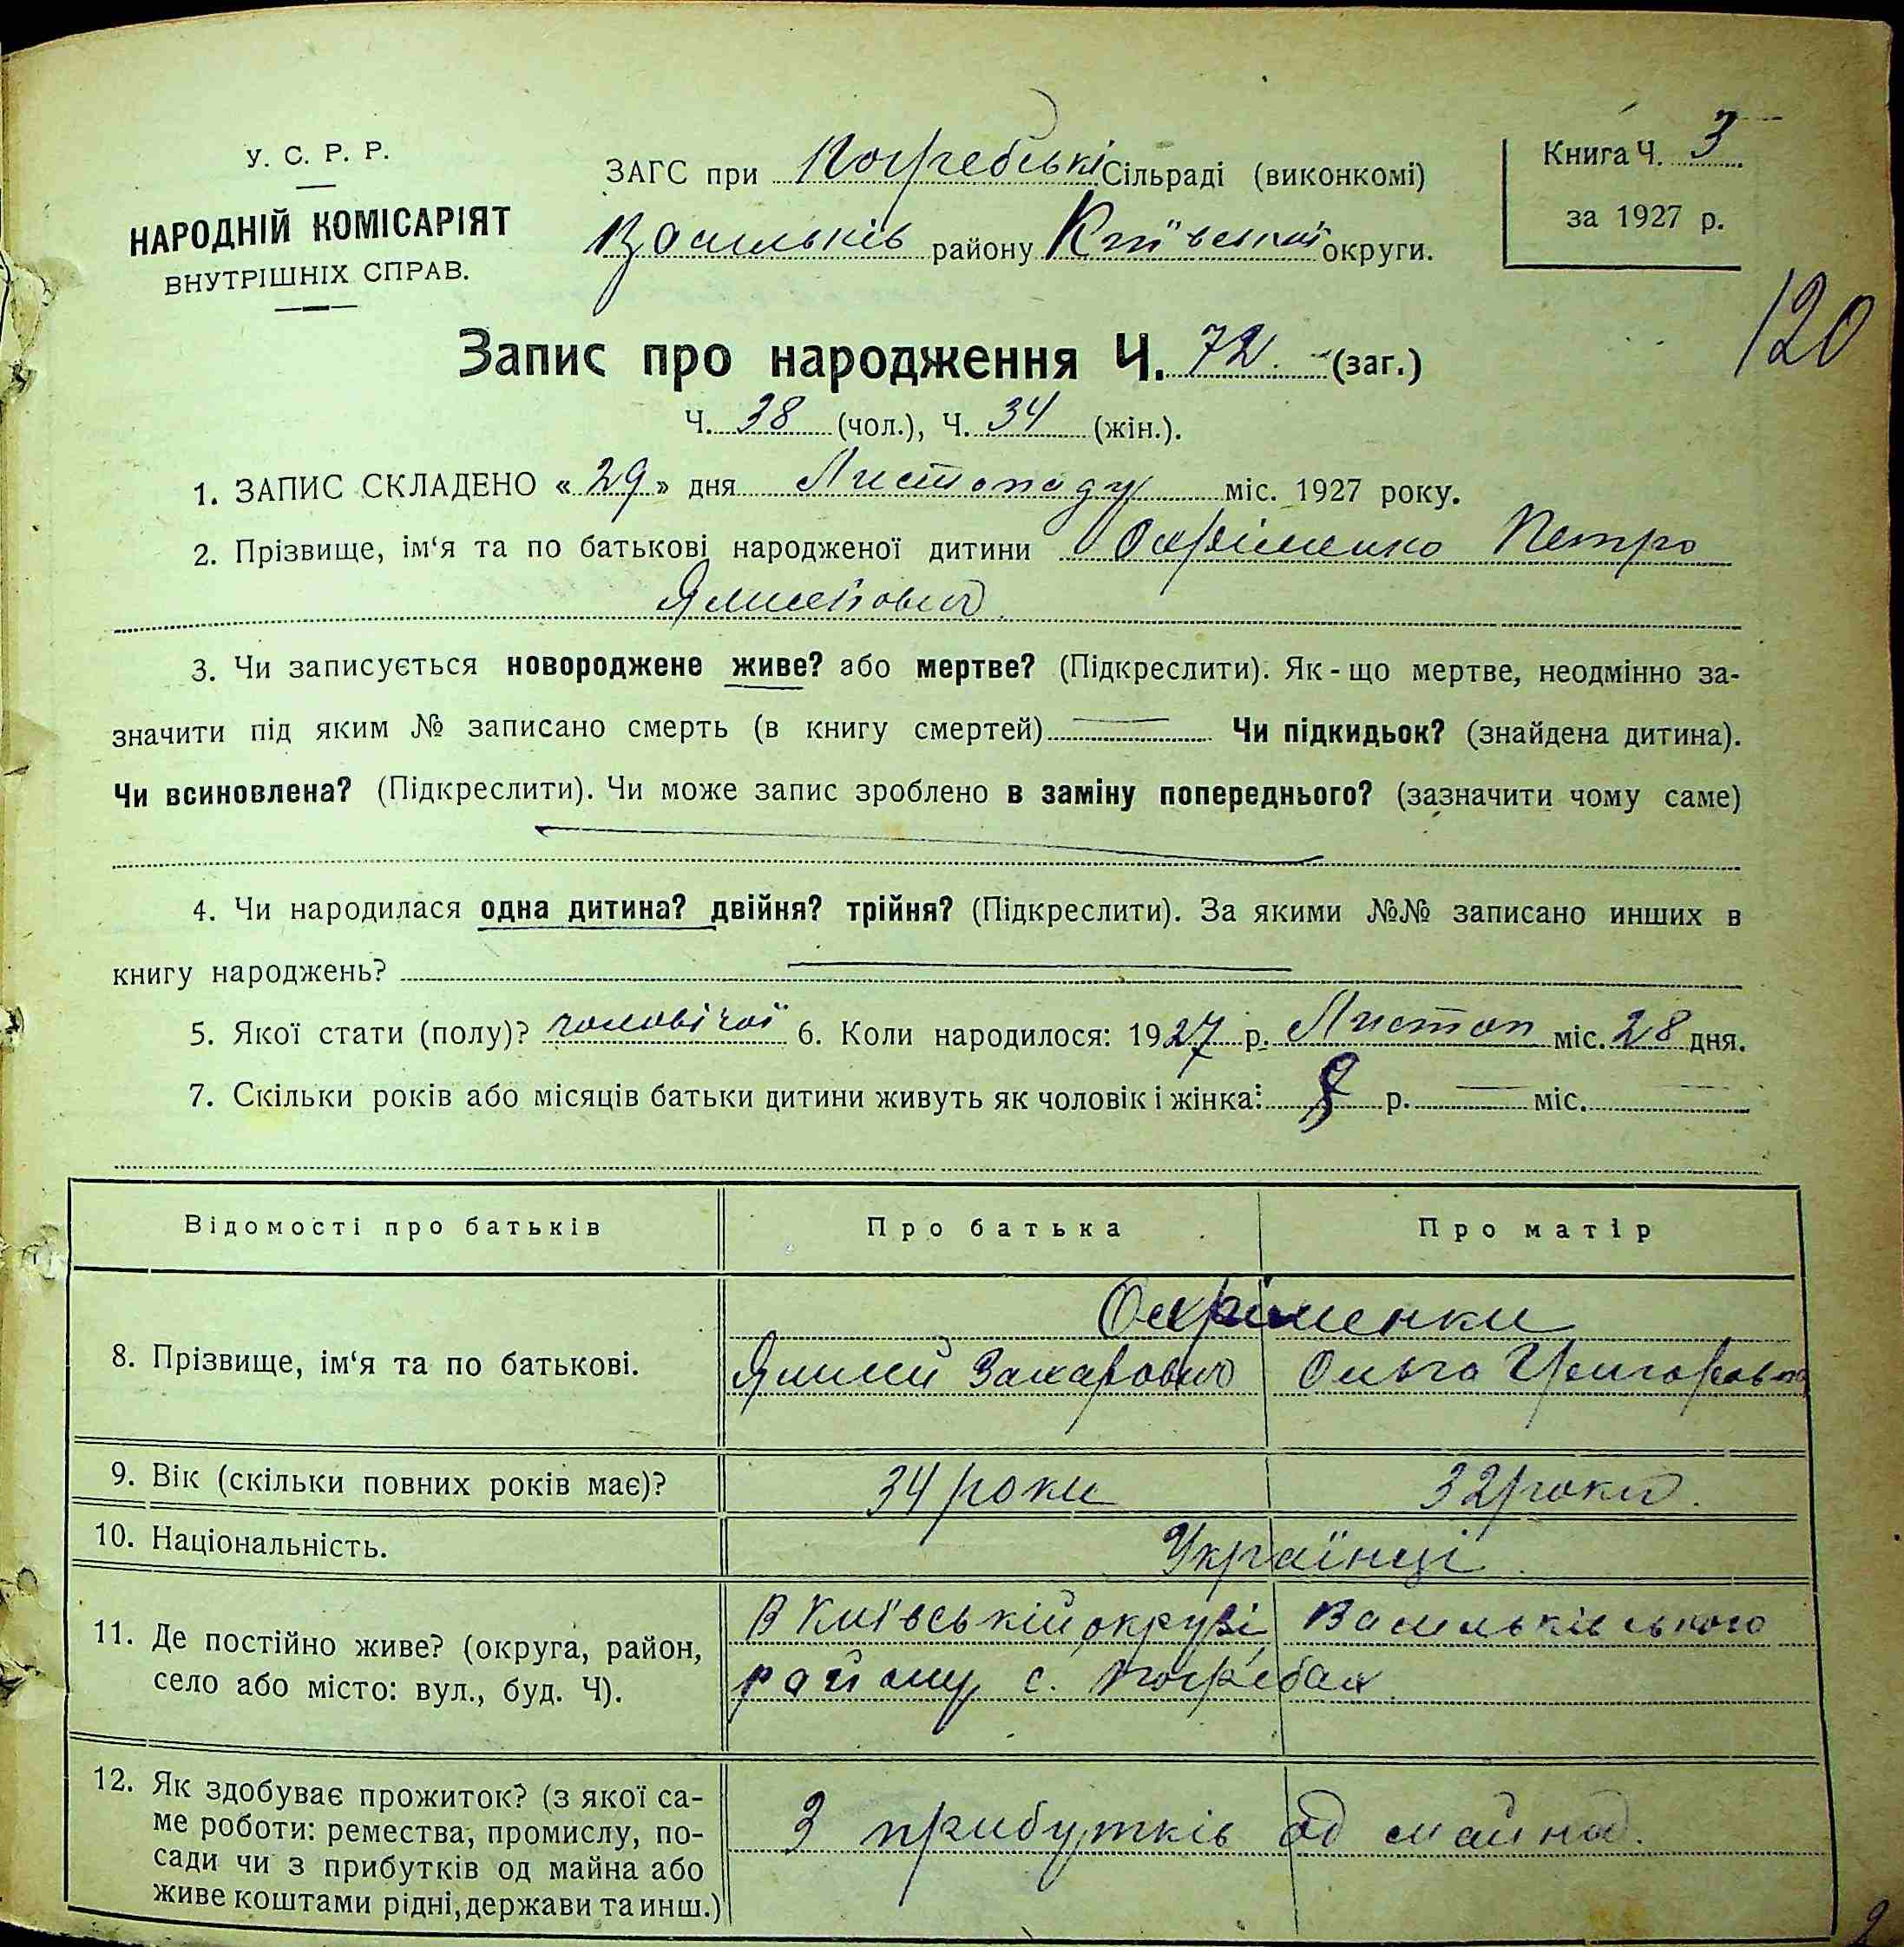 У. С. Р. Р.
НАРОДНІЙ КОМІСАРІЯТ
ВНУТРІШНІХ СПРАВ.
ЗАГС при Погребські Сільраді (виконкомі)
Васильків району Київської округи.
Книга Ч. 3
за 1927 р.
120
Запис про народження Ч. 72 (заг.)
Ч. 38 (чол.), Ч. 34 (жін.).
1. ЗАПИС СКЛАДЕНО «29» дня Листопаду міс. 1927 року.
2. Прізвище, ім‘я та по батькові народженої дитини Охріменко Петро
3. Чи записується новороджене живе? або мертве? (Підкреслити). Як-що мертве, неодмінно за-
значити під яким № записано смерть (в книгу смертей) Чи підкидьок? (знайдена дитина).
Чи всиновлена? (Підкреслити). Чи може запис зроблено в заміну попереднього? (зазначити чому саме)
4. Чи народилася одна дитина? двійня? трійня? (Підкреслити). За якими №№ записано инших в
книгу народжень?
5. Якої стати (полу)? чоловічої 6. Коли народилося: 1927 р. Листоп міс. 28 дня.
7. Скільки років або місяців батьки дитини живуть як чоловік і жінка: р. міс.
Відомості про батьків Про батька Про матір
Охріменки
8. Прізвище, ім‘я та по батькові. Захарович Ольга Григоровна
9. Вік (скільки повних років має)? 34 роки 32 роки.
10. Національність. Українці
11. Де постійно живе? (округа, район,
село або місто: вул., буд. Ч).
В Київській окрузі Васильківського
району с. Погребах
12. Як здобуває прожиток? (з якої са-
ме роботи: ремества, промислу, по-
сади чи з прибутків од майна або
живе коштами рідні, держави та инш.)
З прибутків од майна.
2